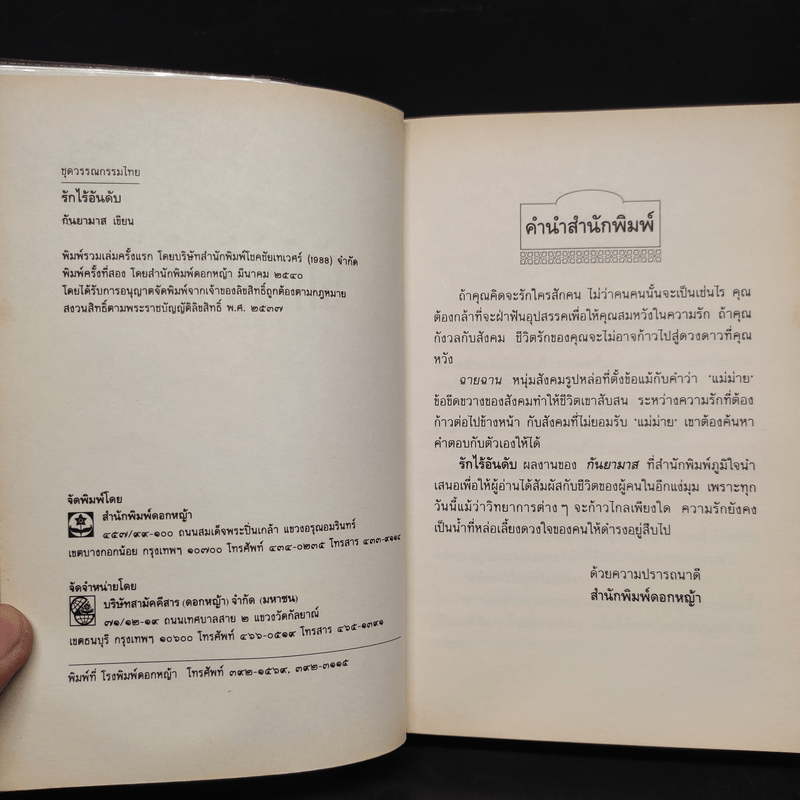 ชุดวรรณกรรมไทย
รักไร้อันดับ
กันยามาส เขียน
พิมพ์รวมเล่มครั้งแรก โดยบริษัทสำนักพิมพ์โชคชัยเทเวศร์ (1988) จำกัด
พิมพ์ครั้งที่สอง โดยสำนักพิมพ์ดอกหญ้า มีนาคม ๒๕๔๐
โดยได้รับการอนุญาตจัดพิมพ์จากเจ้าของลิขสิทธิ์ถูกต้องตามกฎหมาย
สงวนสิทธิ์ตามพระราชบัญญัติลิขสิทธิ์ พ.ศ. ๒๕๓๗
จัดพิมพ์โดย
สำนักพิมพ์ดอกหญ้า
๔๕๗/๙๙-๑๐๐ ถนนสมเด็จพระปิ่นเกล้า แขวงอรุณอมรินทร์
เขตบางกอกน้อย กรุงเทพฯ ๑๐๗๐๐ โทรศัพท์ ๔๓๔-๐๒๓๕ โทรสาร
จัดจำหน่ายโดย
บริษัทสามัคคีสาร (ดอกหญ้า) จำกัด (มหาชน)
๗๑/๑๒-๑๙ ถนนเทศบาลสาย ๒ แขวงวัดกัลยาณ์
เขตธนบุรี กรุงเทพฯ ๑๐๖๐๐ โทรศัพท์ ๔๖๖-๐๕๑๙ โทรสาร ๔๖๕-๑๓๙๑
พิมพ์ที่ โรงพิมพ์ดอกหญ้า โทรศัพท์ ๓๙๒-๑๕๖๙, ๓๙๒-๓๑๑๕
คำนำสำนักพิมพ์
ถ้าคุณคิดจะรักใครสักคน ไม่ว่าคนคนนั้นจะเป็นเช่นไร คุณ
ต้องกล้าที่จะฝ่าฟันอุปสรรคเพื่อให้คุณสมหวังในความรัก ถ้าคุณ
กังวลกับสังคม ชีวิตรักของคุณจะไม่อาจก้าวไปสู่ดวงดาวที่คุณ
หวัง
ฉายฉาน หนุ่มสังคมรูปหล่อที่ตั้งข้อแม้กับคำว่า "แม่ม่าย"
ข้อขีดขวางของสังคมทำให้ชีวิตเขาสับสน ระหว่างความรักที่ต้อง
ก้าวต่อไปข้างหน้า กับสังคมที่ไม่ยอมรับ "แม่ม่าย" เขาต้องค้นหา
คำตอบกับตัวเองให้ได้
รักไร้อันดับ ผลงานของ กันยามาส ที่สำนักพิมพ์ภูมิใจนำ
เสนอเพื่อให้ผู้อ่านได้สัมผัสกับชีวิตของผู้คนในอีกแง่มุม เพราะทุก
วันนี้แม้ว่าวิทยาการต่างๆ จะก้าวไกลเพียงใด ความรักยังคง
เป็นน้ำที่หล่อเลี้ยงดวงใจของคนให้ดำรงอยู่สืบไป
ด้วยความปรารถนาดี
สำนักพิมพ์ดอกหญ้า